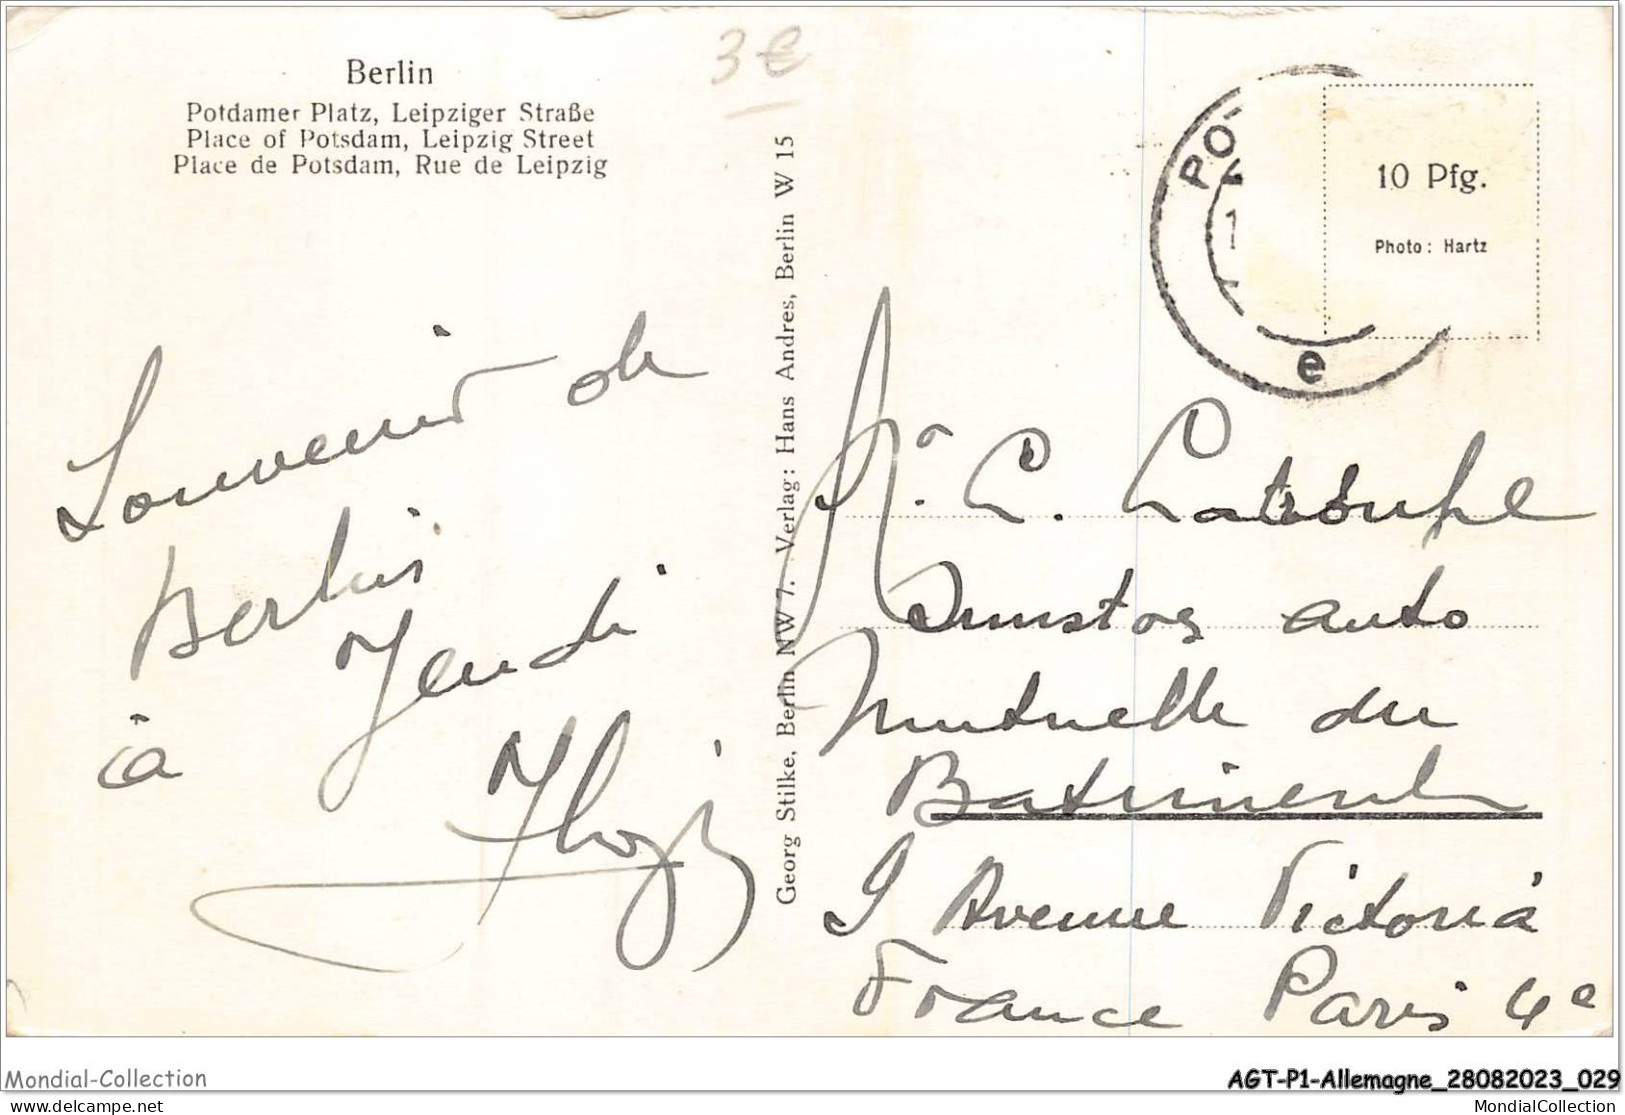 Berlin
Potdamer Platz, Leipziger Straße
Place of Potsdam, Leipzig Street
Place de Potsdam, Rue de Leipzig
3 €
Souvenir de
Berlin
à Jeudi
Georg Stilke, Berlin NW 7. Verlag: Hans Andres, Berlin W 15
PO
1
e
10 Pfg.
Photo: Hartz
Mr. C.
auto
Mutuelle du
Batiment
9 Avenue Victoria
France Paris 4e
Mondial-Collection
AGT-P1-Allemagne_28082023_029
delcampe.net
MondialCollection